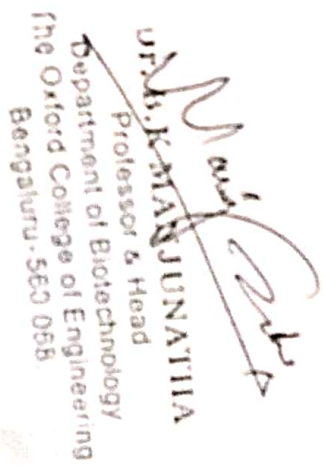 Dr. B.K MANJUNATHA
Professor & Head
Department of Biotechnology
The Oxford College of Engineering
Bengaluru-560 068.